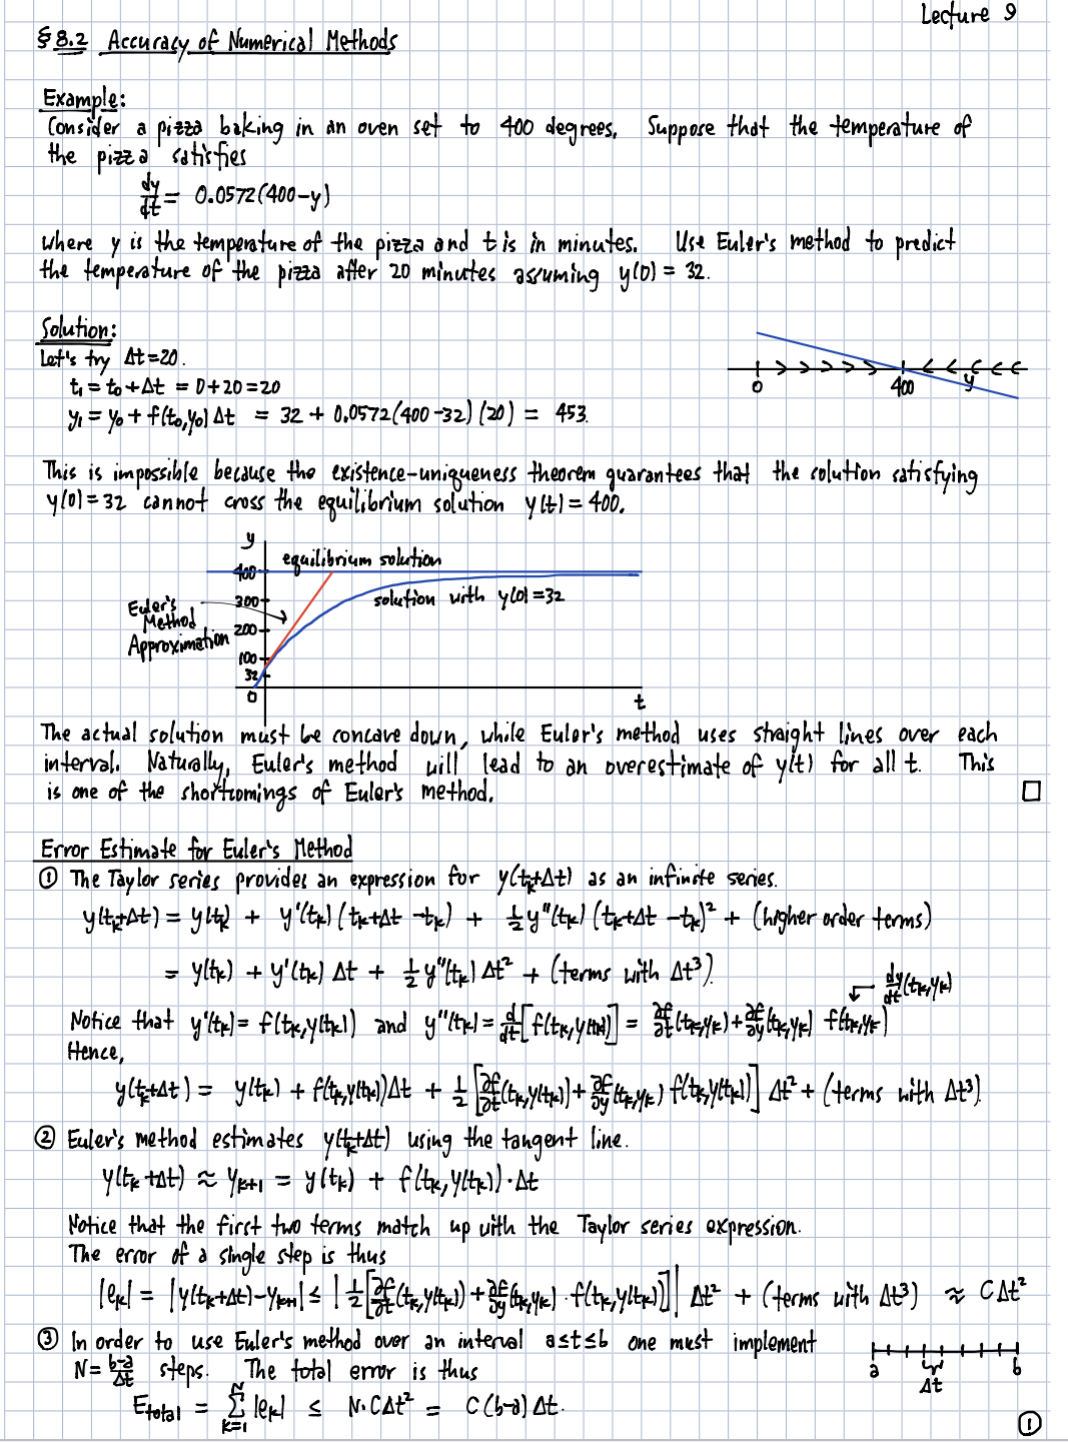 Lecture 9
§8.2 Accuracy of Numerical Methods
Example:
Consider a pizza baking in an oven set to 400 degrees. Suppose that the temperature of
the pizza satisfies
dy/dt = 0.0572(400-y)
where y is the temperature of the pizza and t is in minutes. Use Euler's method to predict
the temperature of the pizza after 20 minutes assuming y(0) = 32.
Solution:
Let's try Δt=20.
t₁ = t₀+Δt = 0+20 = 20
y₁ = y₀ + f(t₀,y₀)Δt = 32 + 0.0572(400-32)(20) = 453.
0 400 y
This is impossible because the existence-uniqueness theorem guarantees that the solution satisfying
y(0)=32 cannot cross the equilibrium solution y(t) = 400.
y
equilibrium solution
400
300
200
100
32
0
t
solution with y(0)=32
Euler's
Method
Approximation
The actual solution must be concave down, while Euler's method uses straight lines over each
interval. Naturally, Euler's method will lead to an overestimate of y(t) for all t. This
is one of the shortcomings of Euler's method. □
Error Estimate for Euler's Method
① The Taylor series provides an expression for y(tₖ+Δt) as an infinite series.
y(tₖ+Δt) = y(tₖ) + y'(tₖ)(tₖ+Δt-tₖ) + ½y"(tₖ)(tₖ+Δt-tₖ)² + (higher order terms)
= y(tₖ) + y'(tₖ)Δt + ½y"(tₖ)Δt² + (terms with Δt³).
dy/dt(tₖ,yₖ)
Notice that y'(tₖ) = f(tₖ,y(tₖ)) and y"(tₖ) = d/dt[f(tₖ,y(tₖ))] = ∂f/∂t(tₖ,yₖ)+∂f/∂y(tₖ,yₖ) f(tₖ,yₖ)
Hence,
y(tₖ+Δt) = y(tₖ) + f(tₖ,y(tₖ))Δt + ½[∂f/∂t(tₖ,y(tₖ))+∂f/∂y(tₖ,yₖ) f(tₖ,y(tₖ))]Δt² + (terms with Δt³).
② Euler's method estimates y(tₖ+Δt) using the tangent line.
y(tₖ+Δt) ≈ yₖ₊₁ = y(tₖ) + f(tₖ,y(tₖ))·Δt
Notice that the first two terms match up with the Taylor series expression.
The error of a single step is thus
|eₖ| = |y(tₖ+Δt)-yₖ₊₁| ≤ |½[∂f/∂t(tₖ,y(tₖ))+∂f/∂y(tₖ,yₖ)·f(tₖ,y(tₖ))]| Δt² + (terms with Δt³) ≈ CΔt²
③ In order to use Euler's method over an interval a≤t≤b one must implement
N = (b-a)/Δt steps. The total error is thus
a Δt b
E_total = Σ_{k=1}^{N} |eₖ| ≤ N·CΔt² = C(b-a)Δt.
①